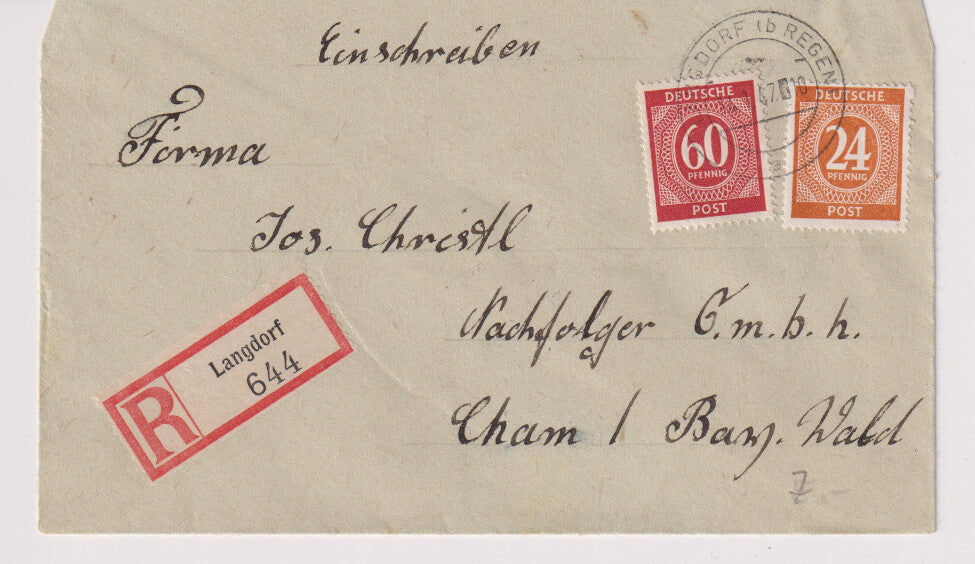 Einschreiben
GDORF (b REGEN
47
DEUTSCHE
60
PFENNIG
POST
DEUTSCHE
24
PFENNIG
POST
Firma
Jos. Christl
Nachfolger G.m.b.h.
Cham / Bay. Wald
R
Langdorf
644
7.-